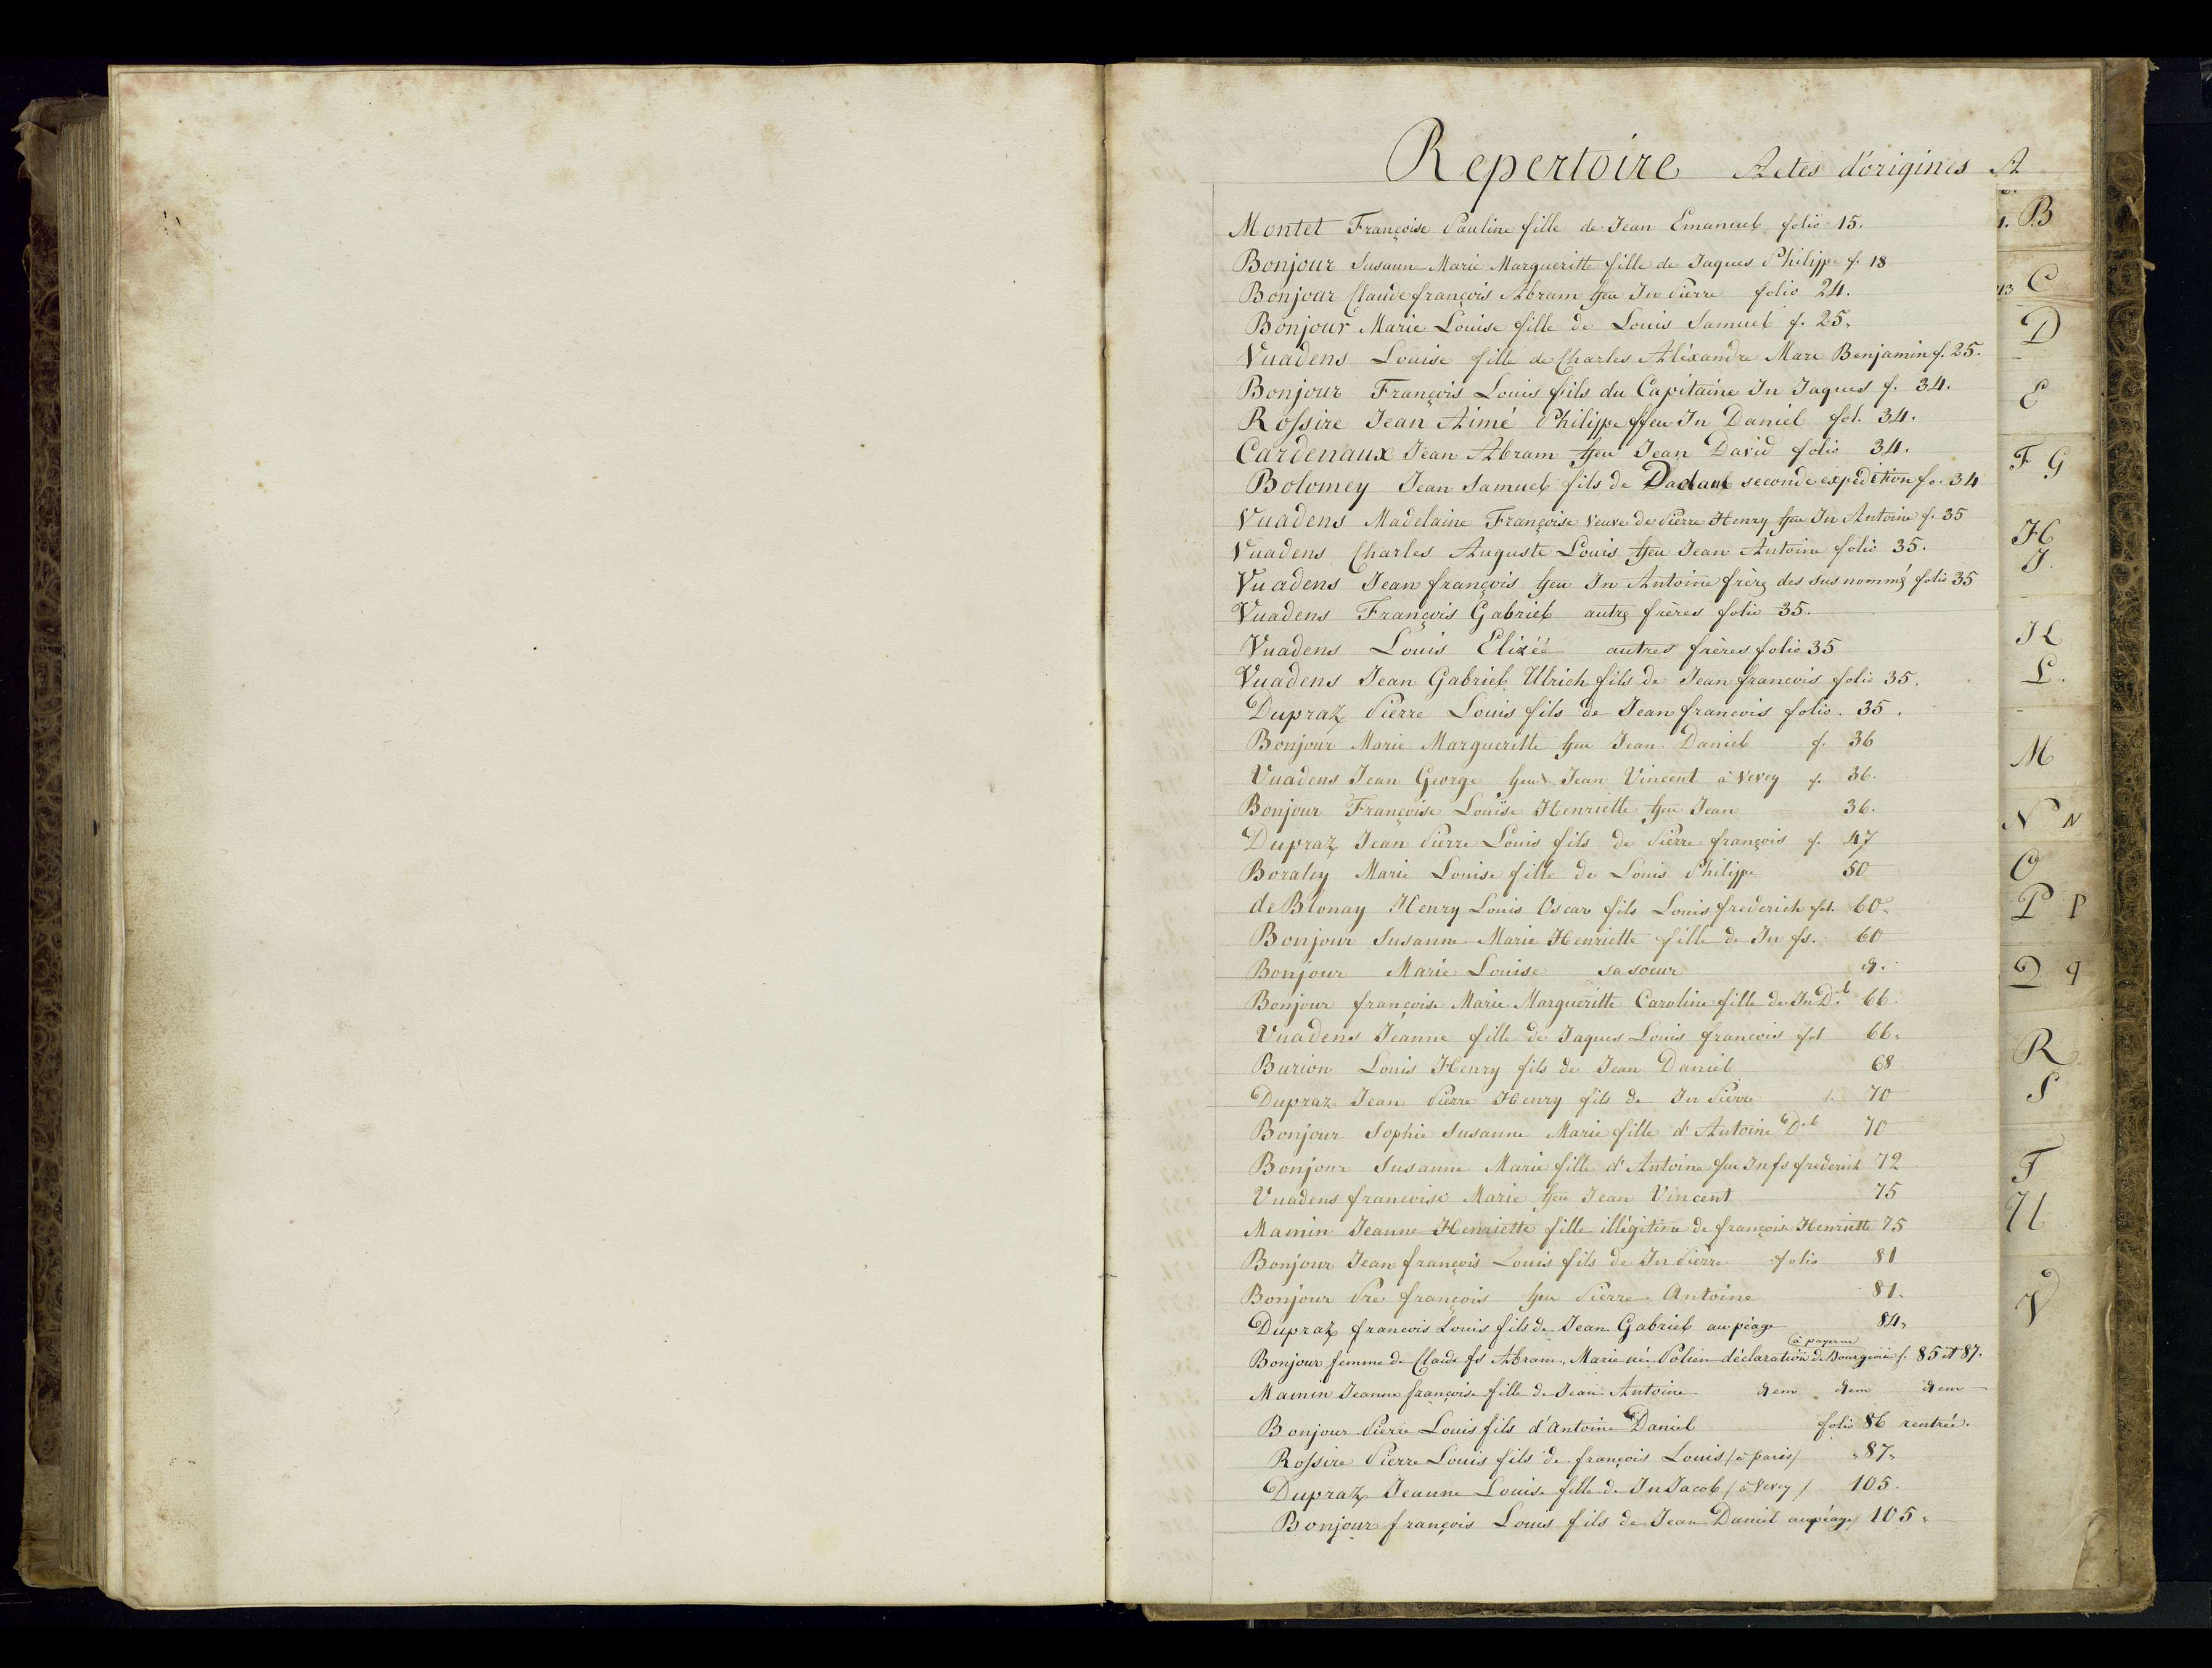 Repertoire Actes d'origines A
Montet Françoise Pauline fille de Jean Emanuel folio 15.
Bonjour Susanne Marie Margueritte fille de Jaques Philippe f. 18
Bonjour Claude françois Abram ffeu Jn Pierre folio 24.
Bonjour Marie Louise fille de Louis Samuel f. 25.
Vuadens Louise fille de Charles Aléxandre Marc Benjamin f. 25.
Bonjour François Louis fils du Capitaine Jn Jaques f. 34.
Rossire Jean Aimé Philippe ffeu Jn Daniel fol. 34.
Cardenaux Jean Abram ffeu Jean David folio 34.
Bolomey Jean Samuel fils de seconde expédition fo. 34
Vuadens Madelaine Françoise veuve de Pierre Henry ffeu Jn Antoine f. 35
Vuadens Charles Auguste Louis ffeu Jean Antoine folio 35.
Vuadens Jean françois ffeu Jn Antoine frère des sus nommés folio 35
Vuadens François Gabriel autre frères folio 35.
Vuadens Louis Elizéé autres frères folio 35
Vuadens Jean Gabriel Ulrich fils de Jean francois folio 35.
Dupraz Pierre Louis fils de Jean francois folio. 35.
Bonjour Marie Margueritte ffeu Jean Daniel f. 36
Vuadens Jean George ffeu Jean Vincent à Vevey f. 36.
Bonjour Françoise Louise Henriette ffeu Jean 36.
Dupraz Jean Pierre Louis fils de Pierre françois f. 47
Boraley Marie Louise fille de Louis Philippe 50
de Blonay Henry Louis Oscar fils Louis frederich fol. 60.
Bonjour Susanne Marie Henriette fille de Jn fs. 60
Bonjour Marie Louise sa soeur d.
Bonjour françoise Marie Margueritte Caroline fille de Jn Del 66.
Vuadens Jeanne fille de Jaques Louis francois fol 66.
Burion Louis Henry fils de Jean Daniel 68
Dupraz Jean Pierre Henry fils de Jn Pierre f. 70
Bonjour Sophie Susanne Marie fille d'Antoine Del 70
Bonjour Susanne Marie fille d'Antoine feu Jn fs frederich 72
Vuadens francoise Marie ffeu Jean Vincent 75
Mamin Jeanne Henriette fille illégitime de françoise Henriette 75
Bonjour Jean françois Louis fils de Jn Pierre folio 81
Bonjour Pre françois ffeu Pierre Antoine 81.
Dupraz francois Louis fils de Jean Gabriel au péage 84.
à payerne
Bonjour femme de Claude fs Abram, Marie né Polien déclaration de Bourgeoisie f. 85 et 87.
Mamin Jeanne françoise fille de Jean Antoine dem dem dem
Bonjour Pierre Louis fils d'Antoine Daniel folio 86 rentrée.
Rossire Pierre Louis fils de françois Louis / à paris / 87.
Dupraz Jeanne Louise fille de Jn Jacob / à Vevey / 105.
Bonjour françois Louis fils de Jean Daniel au péage / 105.
B
C
D
E
F G
H
J.
K
L.
M
N N
O
P P
Q q
R
S
T
U
V